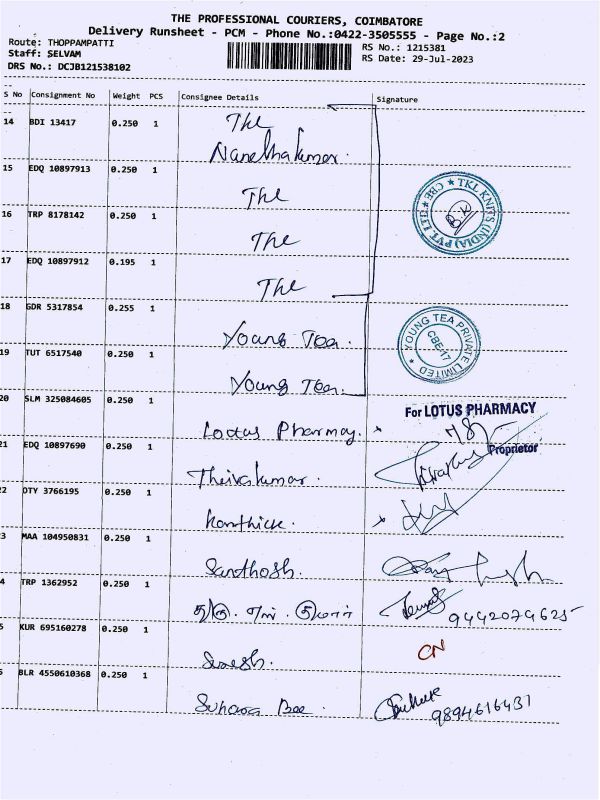 THE PROFESSIONAL COURIERS, COIMBATORE
Delivery Runsheet - PCM - Phone No.:0422-3505555 - Page No.:2
Route: THOPPAMPATTI
Staff: SELVAM
DRS No.: DCJB121538102
RS No.: 1215381
RS Date: 29-Jul-2023
S No Consignment No Weight PCS Consignee Details Signature
14 BDI 13417 0.250 1 The
Nanethakumar.
15 EDQ 10897913 0.250 1 The
16 TRP 8178142 0.250 1 The
17 EDQ 10897912 0.195 1 The
TKL KNITS (INDIA) PVT. LTD ★ CBE ★
18 GDR 5317854 0.255 1 Young Tea.
19 TUT 6517540 0.250 1 Young Tea.
YOUNG TEA PRIVATE LIMITED ★
CBE-17
20 SLM 325084605 0.250 1 Lotus Pharmacy.
For LOTUS PHARMACY
Proprietor
21 EDQ 10897690 0.250 1 Theivakumar.
2 DTY 3766195 0.250 1 Karthick.
3 MAA 104950831 0.250 1 Santhosh.
4 TRP 1362952 0.250 1
9442074625
5 KUR 695160278 0.250 1 Suresh.
CN
BLR 4550610368 0.250 1 Suhara Bee.
9894616431